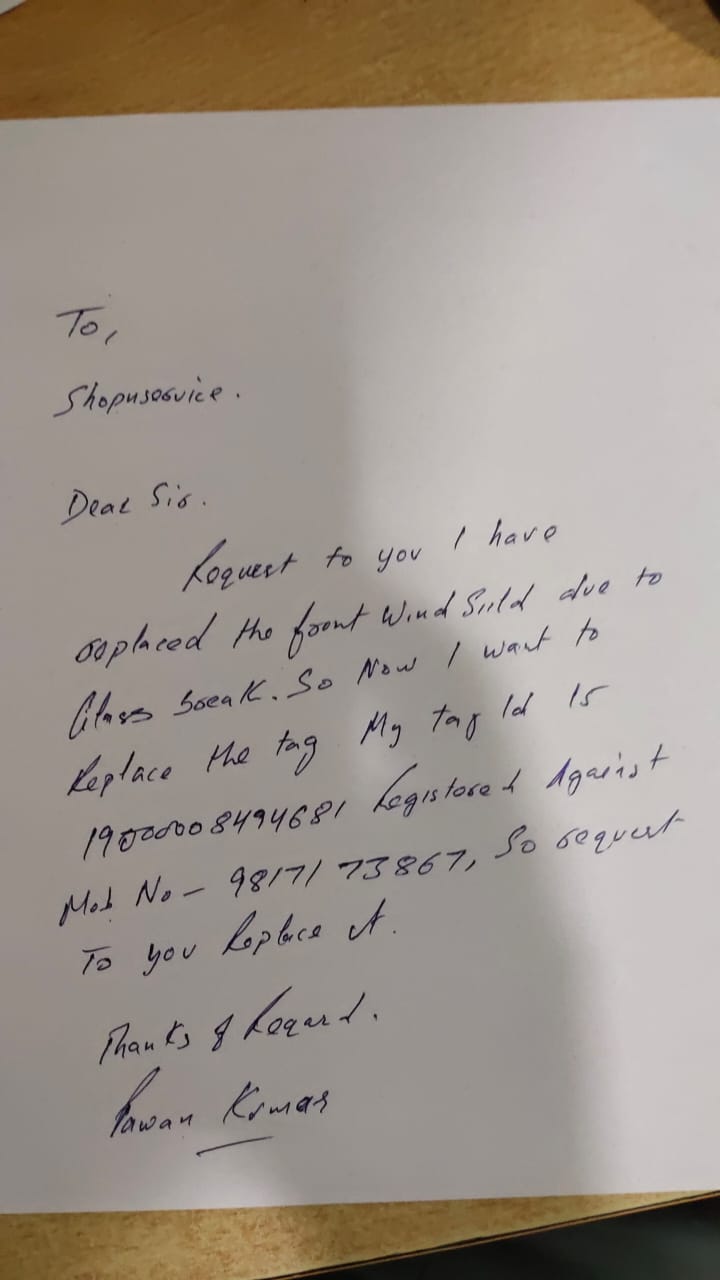 To,
Shopnservice.
Dear Sir.
Request to you I have
replaced the front Wind Sield due to
Glass break. So Now I want to
Replace the tag My tag Id is
Registered Against
Mob No - 9817173867, So request
To you Replace it.
Thanks & Regard.
Pawan Kumar